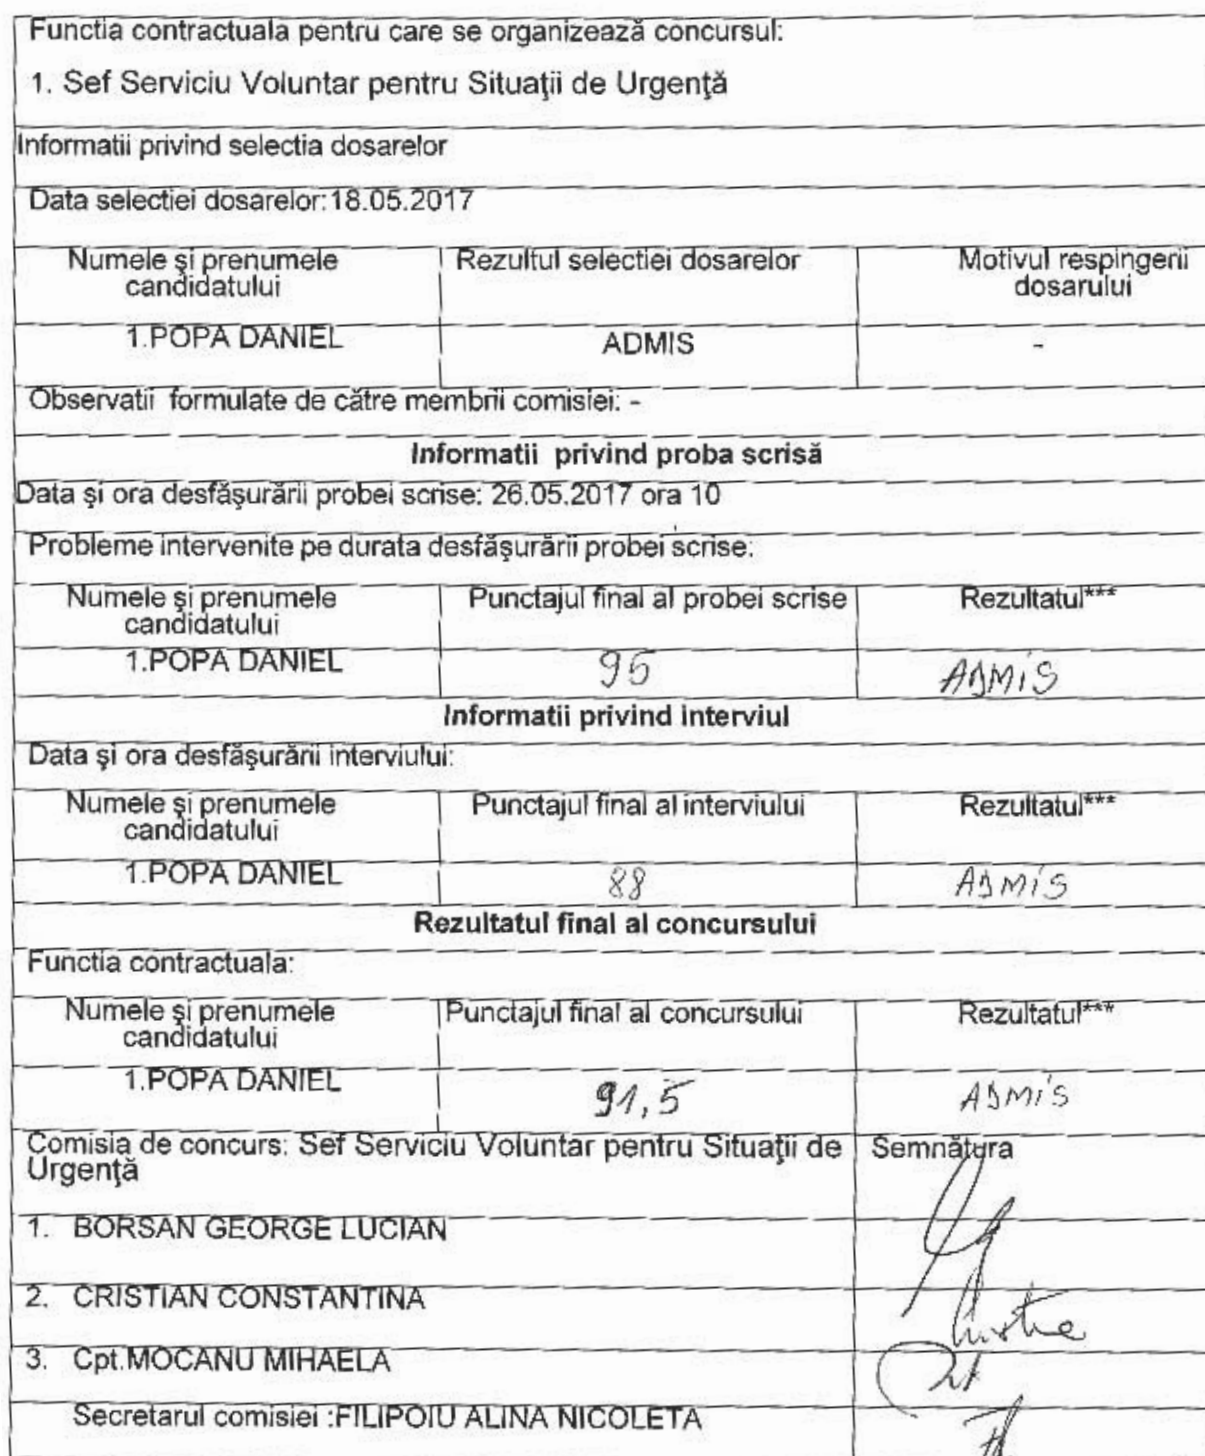 Functia contractuala pentru care se organizează concursul:
1. Sef Serviciu Voluntar pentru Situaţii de Urgenţă
Informatii privind selectia dosarelor
Data selectiei dosarelor:18.05.2017
Numele şi prenumele candidatului Rezultul selectiei dosarelor Motivul respingerii dosarului
1.POPA DANIEL ADMIS -
Observatii formulate de către membrii comisiei: -
Informatii privind proba scrisă
Data şi ora desfăşurării probei scrise: 26.05.2017 ora 10
Probleme intervenite pe durata desfăşurării probei scrise:
Numele şi prenumele candidatului Punctajul final al probei scrise Rezultatul***
1.POPA DANIEL 95 ADMIS
Informatii privind interviul
Data şi ora desfăşurării interviului:
Numele şi prenumele candidatului Punctajul final al interviului Rezultatul***
1.POPA DANIEL 88 ADMIS
Rezultatul final al concursului
Functia contractuala:
Numele şi prenumele candidatului Punctajul final al concursului Rezultatul***
1.POPA DANIEL 91,5 ADMIS
Comisia de concurs: Sef Serviciu Voluntar pentru Situaţii de Semnătura
Urgenţă
1. BORSAN GEORGE LUCIAN
2. CRISTIAN CONSTANTINA
3. Cpt.MOCANU MIHAELA
Secretarul comisiei :FILIPOIU ALINA NICOLETA